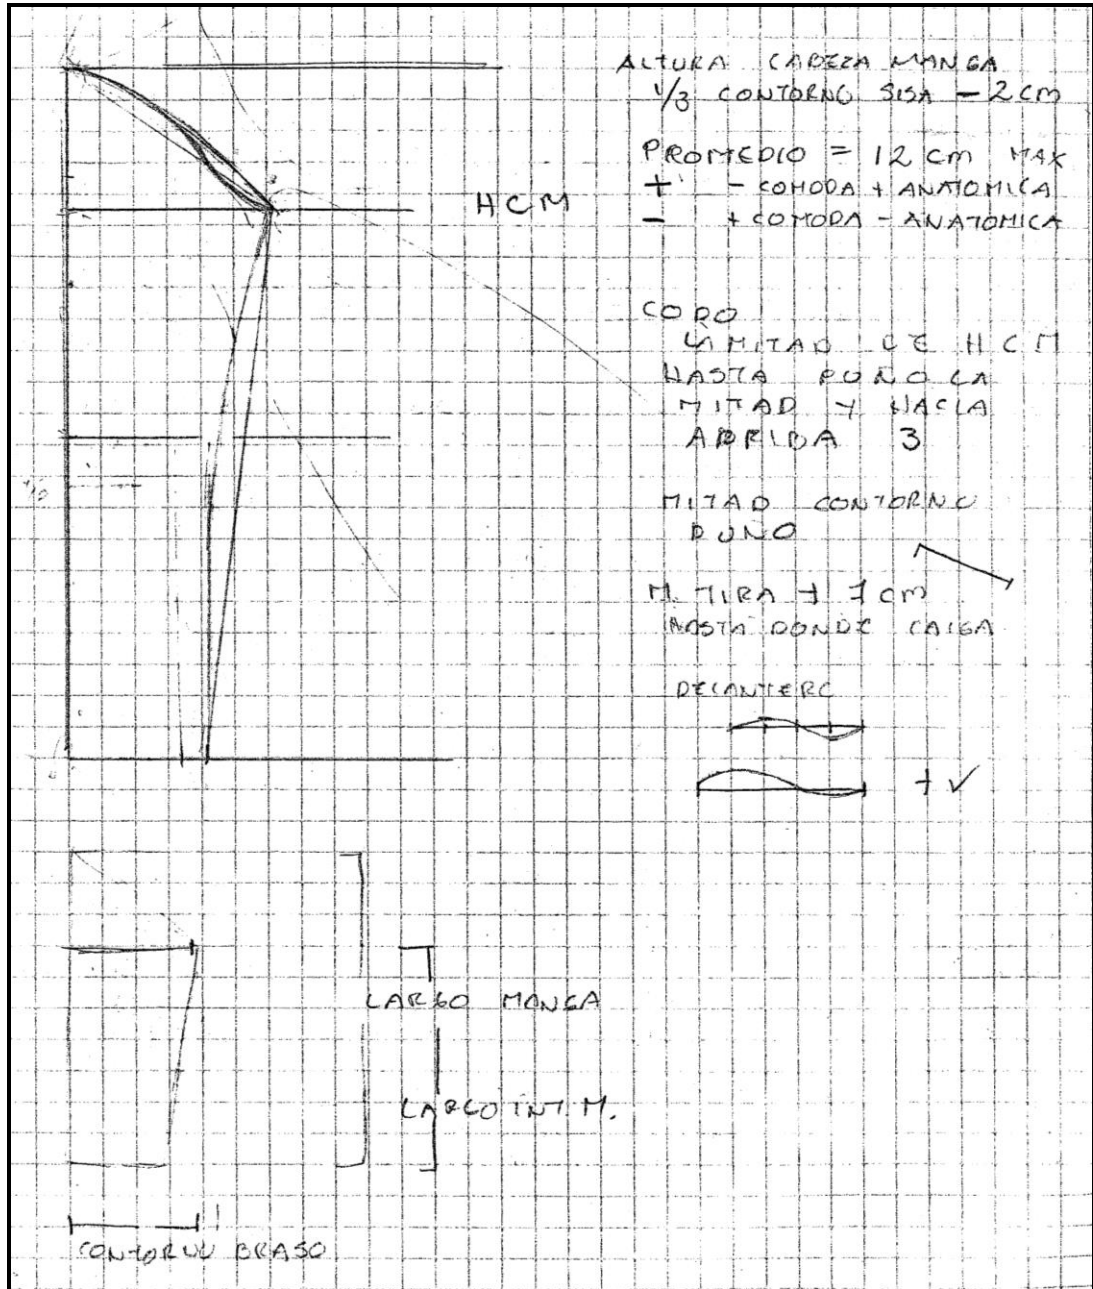 ALTURA CABEZA MANGA
1/3 CONTORNO SISA - 2 CM
PROMEDIO = 12 CM MAX
+ - COMODA + ANATOMICA
- + COMODA - ANATOMICA
HCM
CODO
LA MITAD DE HCM
HASTA PUÑO LA
MITAD Y HACIA
ARRIBA 3
MITAD CONTORNO
PUÑO
HASTA DONDE CAIGA
DELANTERO
+ ✓
LARGO MANGA
LARGO INT M.
CONTORNO BRASO